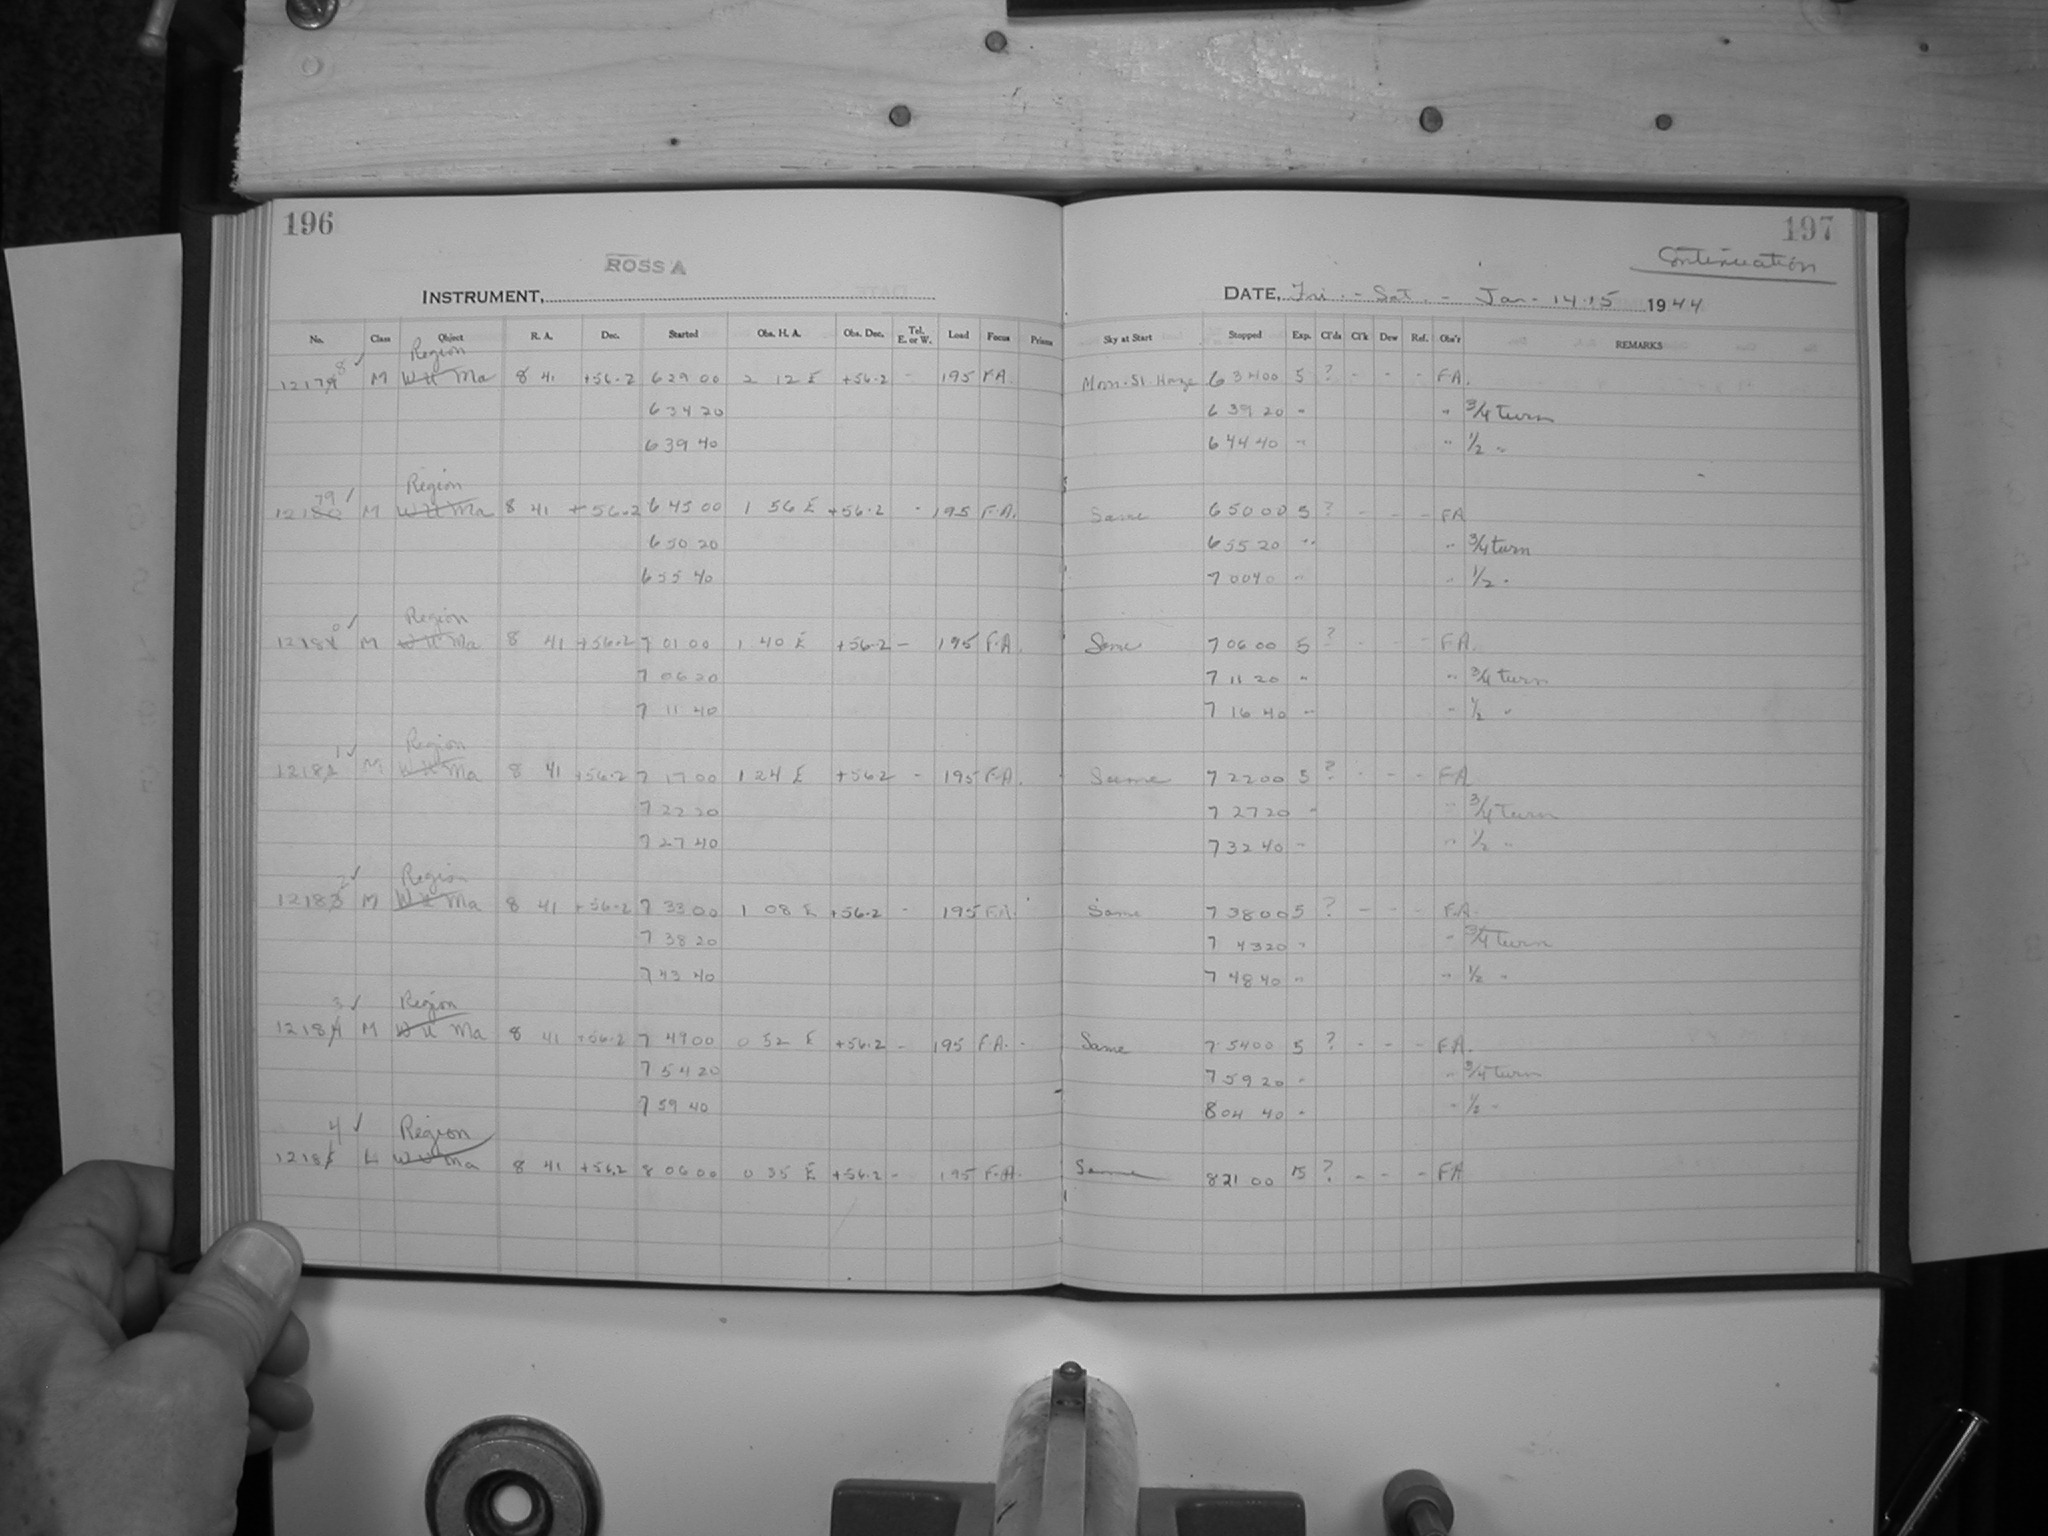 196
ROSS A
INSTRUMENT,
No. Class Object R. A. Dec. Started Obs. H. A. Obs. Dec. Tel. E. or W. Load Focus Prisms
Region
8 ✓
12179 M W U Ma 8 41 +56.2 6 29 00 2 12 E +56.2 - 195 F.A.
6 34 20
6 39 40
Region
79 ✓
12180 M W U Ma 8 41 +56.2 6 45 00 1 56 E +56.2 - 195 F.A.
6 50 20
6 55 40
Region
0 ✓
12181 M W U Ma 8 41 +56.2 7 01 00 1 40 E +56.2 - 195 F.A.
7 06 20
7 11 40
Region
1 ✓
12182 M W U Ma 8 41 +56.2 7 17 00 1 24 E +562 - 195 F.A.
7 22 20
7 27 40
Region
2 ✓
12183 M W U Ma 8 41 +56.2 7 33 00 1 08 E +56.2 - 195 F.A.
7 38 20
7 43 40
Region
3 ✓
12184 M W U Ma 8 41 +56.2 7 49 00 0 52 E +56.2 - 195 F.A. -
7 54 20
7 59 40
Region
4 ✓
12185 L W U Ma 8 41 +56.2 8 06 00 0 35 E +56.2 - 195 F.A.
197
Continuation
DATE, Fri. - Sat. - Jan - 14.15 1944
Sky at Start Stopped Exp. Cl'ds Cl'k Dew Ref. Obs'r REMARKS
Moon-Sl. Haze 6 34 00 5 ? - - - F.A.
6 39 20 " " 3/4 turn
6 44 40 " " 1/2 "
Same 6 50 00 5 ? - - - FA
6 55 20 " " 3/4 turn
7 00 40 " " 1/2 "
Same 7 06 00 5 ? - - - F.A.
7 11 20 " " 3/4 turn
7 16 40 " " 1/2 "
Same 7 22 00 5 ? - - - F.A
7 27 20 " " 3/4 turn
7 32 40 " " 1/2 "
Same 7 38 00 5 ? - - - F.A.
7 43 20 " " 3/4 turn
7 48 40 " " 1/2 "
Same 7 54 00 5 ? - - - F.A.
7 59 20 " " 3/4 turn
8 04 40 " " 1/2 "
Same 8 21 00 15 ? - - - FA